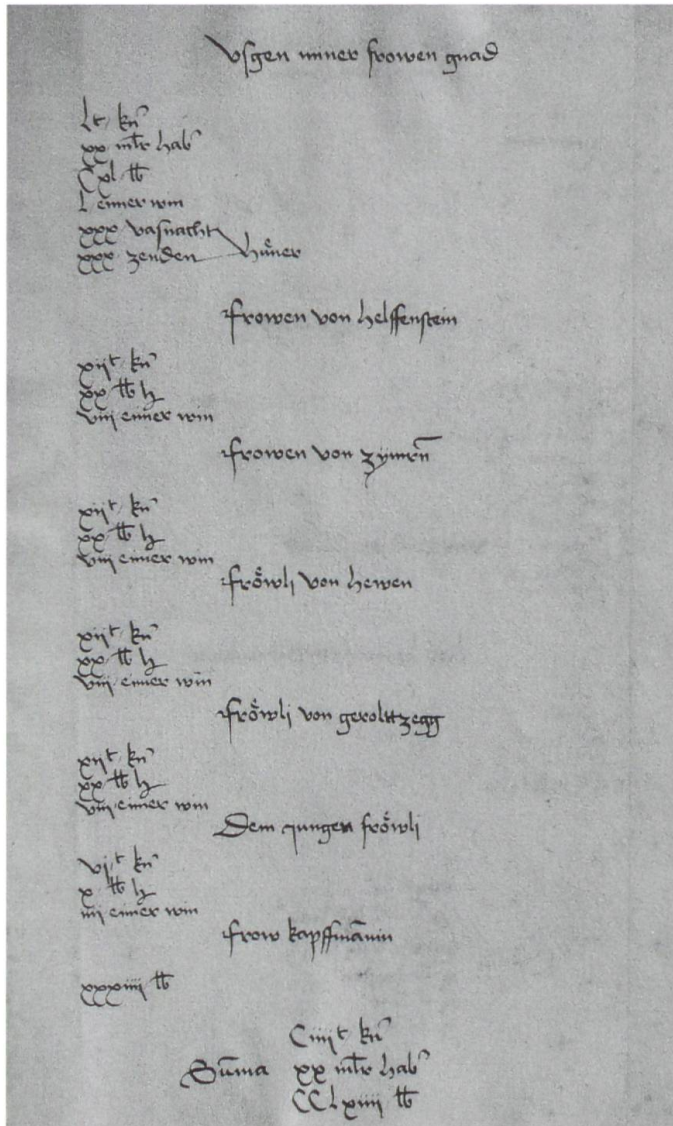 Vsgen miner frowen gnad
L t kn̄
xx mlr hab
Cxl lb
L eimer win
xxx vasnacht
xxx zenden hůner
frowen von helffenstein
xijt kn̄
xx lb h
viij eimer win
frowen von zymrn̄
xijt kn̄
xx lb h
viij eimer win
frǒwli von hewen
xijt kn̄
xx lb h
viij eimer win
frǒwli von geroltzegg
xijt kn̄
xx lb h
viij eimer win
Dem jungen frǒwli
vjt kn̄
x lb h
iiij eimer win
frow kapffmānin
xxxiiij lb
Ciiijt kn̄
Sum̄a xx mlr hab
CCLxiiij lb